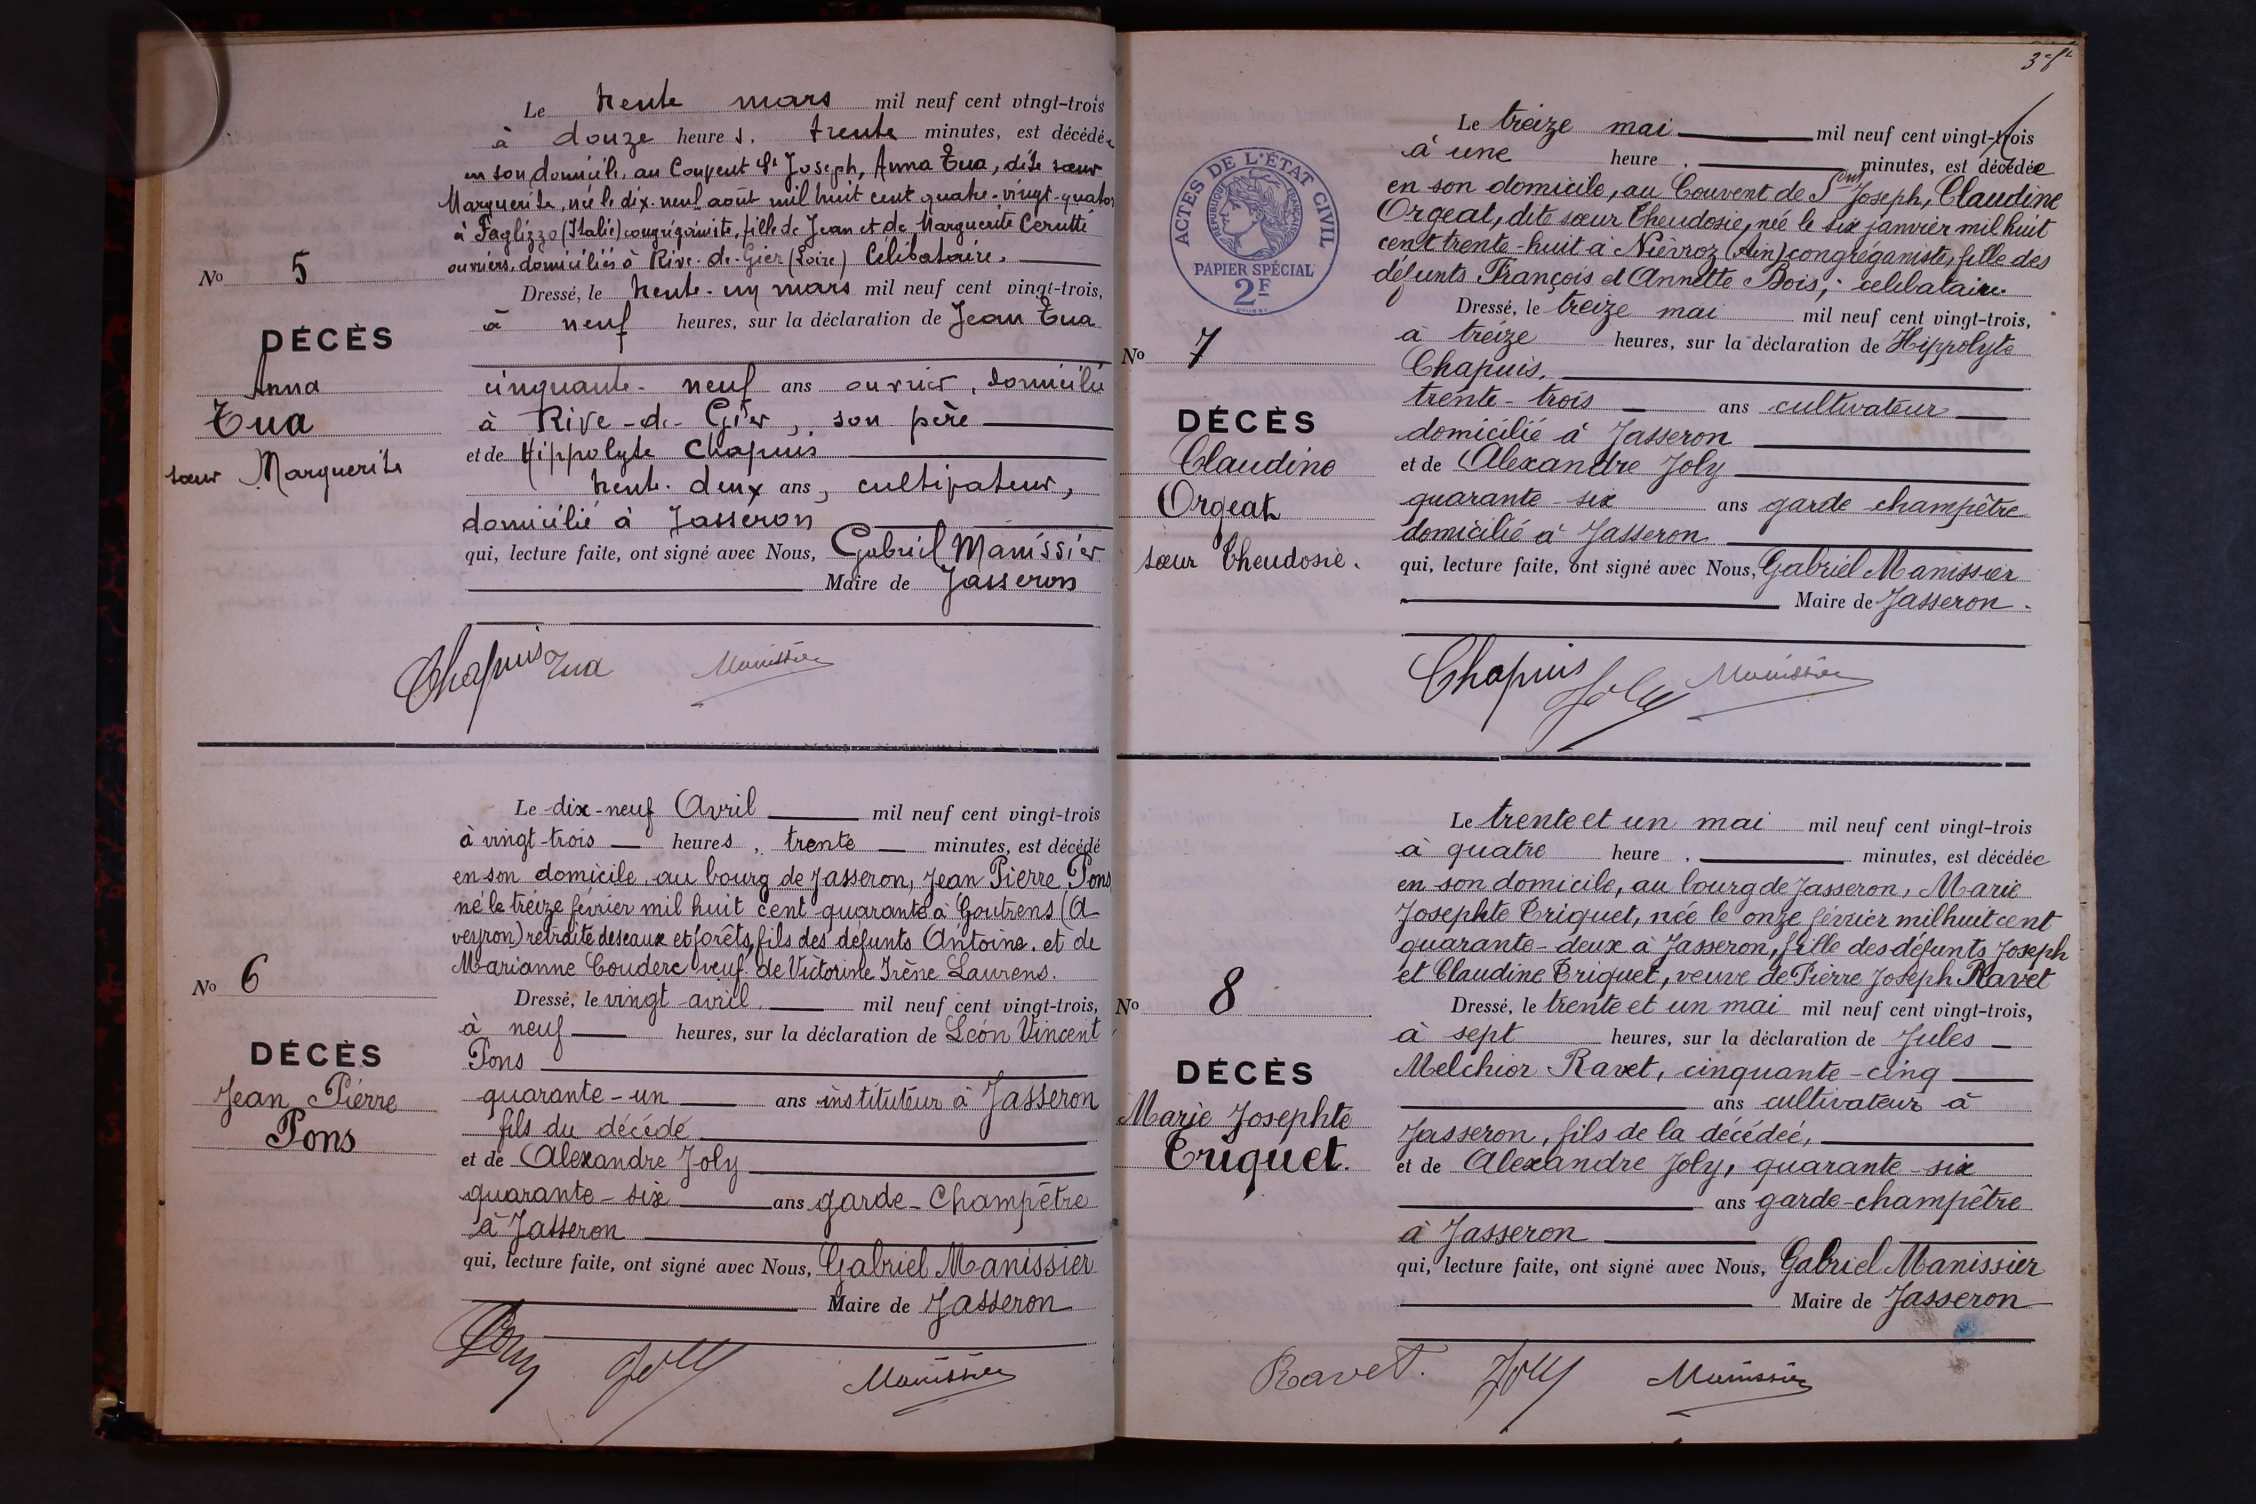 Le trente mars mil neuf cent vingt-trois
à douze heures. trente minutes, est décédée
en son domicile, au Couvent St Joseph, Anna Tua, dite sœur
Marguerite, née le dix-neuf août mil huit cent quatre-vingt-quator
à Faglizzo (Italie) congréganiste, fille de Jean et de Marguerite Cerutti
ouvriers, domiciliés à Rive-de-Gier (Loire) Célibataire.
No 5
Dressé, le trente-un mars mil neuf cent vingt-trois,
à neuf heures, sur la déclaration de Jean Tua
DÉCÈS
Anna
Tua
sœur Marguerite
cinquante-neuf ans ouvrier, domicilié
à Rive-de-Gier, son père
et de Hippolyte Chapuis
trente-deux ans, cultivateur,
domicilié à Jasseron
qui, lecture faite, ont signé avec Nous, Gabriel Manissier
Maire de Jasseron
Chapuis Tua Manissier
Le dix-neuf Avril mil neuf cent vingt-trois
à vingt-trois heures, trente minutes, est décédé
en son domicile au bourg de Jasseron, Jean Pierre Pons
né le treize février mil huit cent quarante à Goutrens (A
veyron) retraité des eaux et forêts, fils des defunts Antoine et de
Marianne Couderc veuf de Victorine Irène Laurens.
No 6
Dressé, le vingt avril mil neuf cent vingt-trois,
à neuf heures, sur la déclaration de Léon Vincent
Pons
DÉCÈS
Jean Pierre
Pons
quarante-un ans instituteur à Jasseron
fils du décédé
et de Alexandre Joly
quarante-six ans garde-Champêtre
à Jasseron
qui, lecture faite, ont signé avec Nous, Gabriel Manissier
Maire de Jasseron
Pons Joly Manissier
Le treize mai mil neuf cent vingt-trois
à une heure. minutes, est décédée
en son domicile, au Couvent de St Joseph, Claudine
Orgeat, dite sœur Theudosie, née le six janvier mil huit
cent trente-huit à Nièvroz (Ain) congréganiste, fille des
défunts François et Annette Bois, celibataire.
ACTES DE L'ÉTAT CIVIL
RÉPUBLIQUE FRANÇAISE
PAPIER SPÉCIAL
2F
Dressé, le treize mai mil neuf cent vingt-trois,
à treize heures, sur la déclaration de Hippolyte
Chapuis.
No 7
DÉCÈS
Claudine
Orgeat
sœur Theudosie.
trente-trois ans cultivateur
domicilié à Jasseron
et de Alexandre Joly
quarante-six ans garde champêtre
domicilié à Jasseron
qui, lecture faite, ont signé avec Nous, Gabriel Manissier
Maire de Jasseron.
Chapuis Joly Manissier
Le trente et un mai mil neuf cent vingt-trois
à quatre heure. minutes, est décédée
en son domicile, au bourg de Jasseron, Marie
Josephte Triquet, née le onze février mil huit cent
quarante-deux à Jasseron, fille des défunts Joseph
et Claudine Triquet, veuve de Pierre Joseph Ravet
No 8
Dressé, le trente et un mai mil neuf cent vingt-trois,
à sept heures, sur la déclaration de Jules
Melchior Ravet, cinquante-cinq
DÉCÈS
Marie Josephte
Triquet.
ans cultivateur à
Jasseron, fils de la décédeé,
et de Alexandre Joly, quarante-six
ans garde-champêtre
à Jasseron
qui, lecture faite, ont signé avec Nous, Gabriel Manissier
Maire de Jasseron
Ravet. Joly Manissier